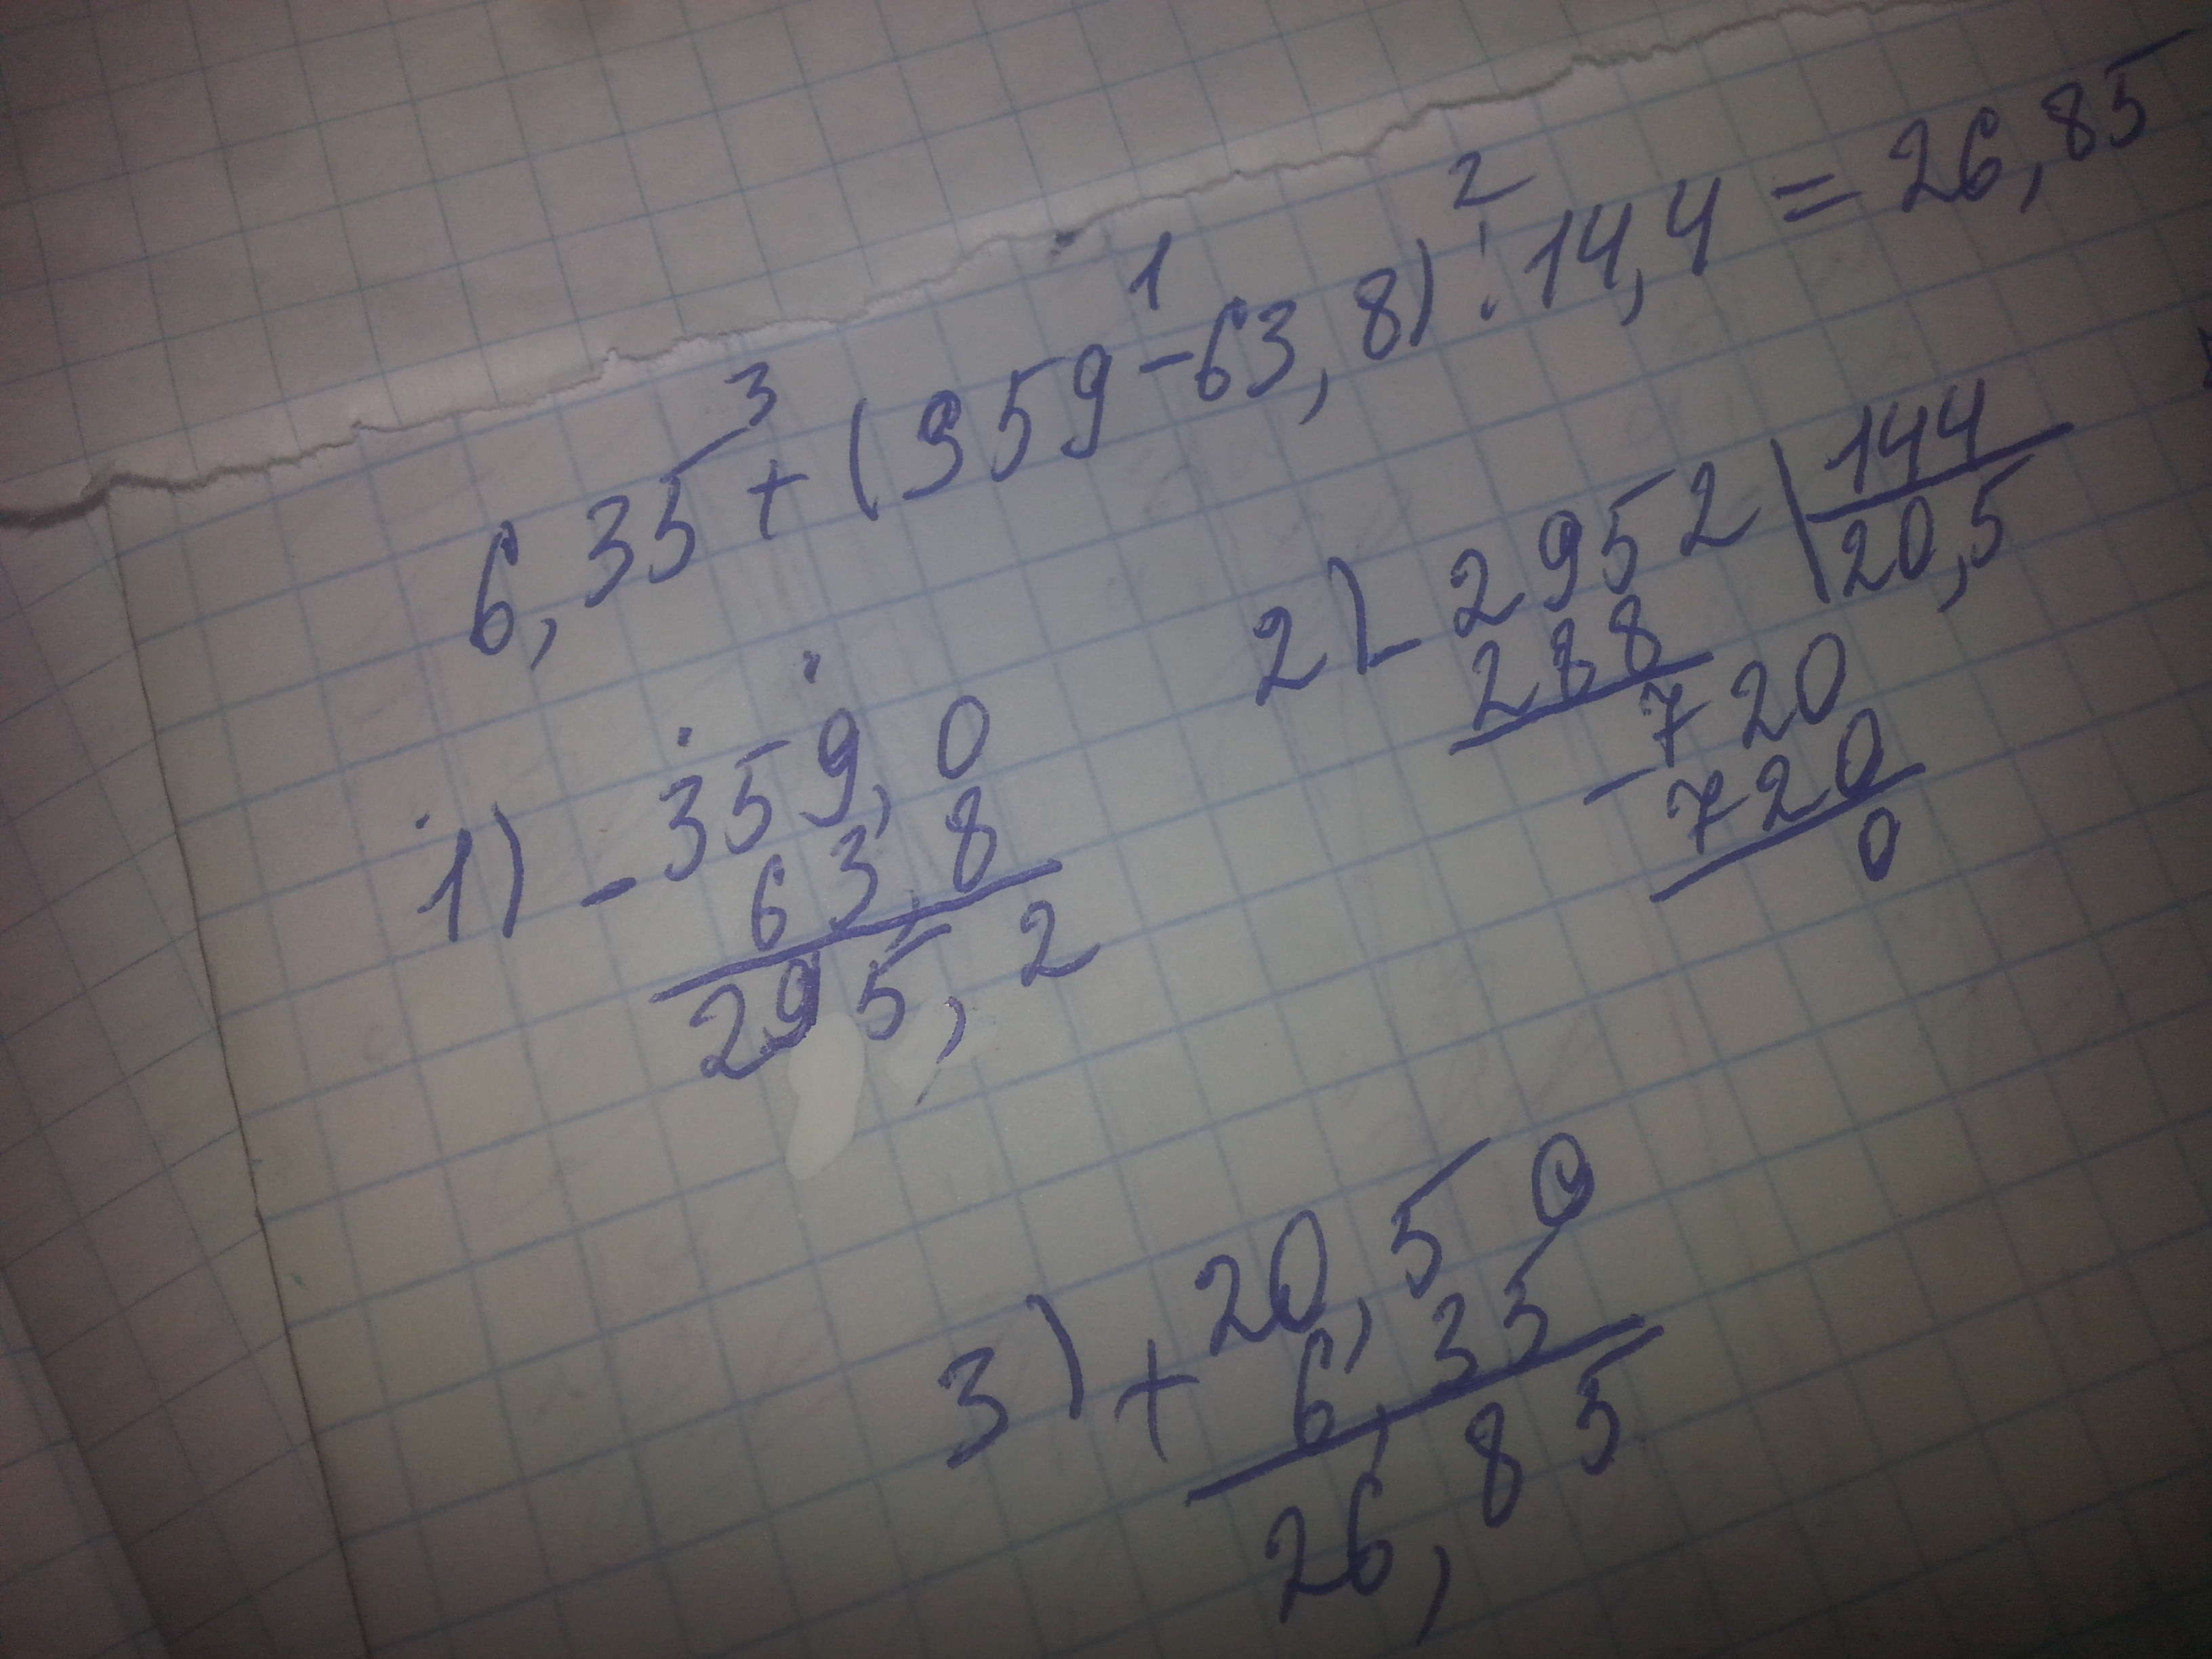 3 1 2
6,35 + (359 - 63,8) : 14,4 = 26,85
1) - 359,0
63,8
295,2
2) - 2952 | 144
288 20,5
- 720
720
0
3) + 20,50
6,35
26,85